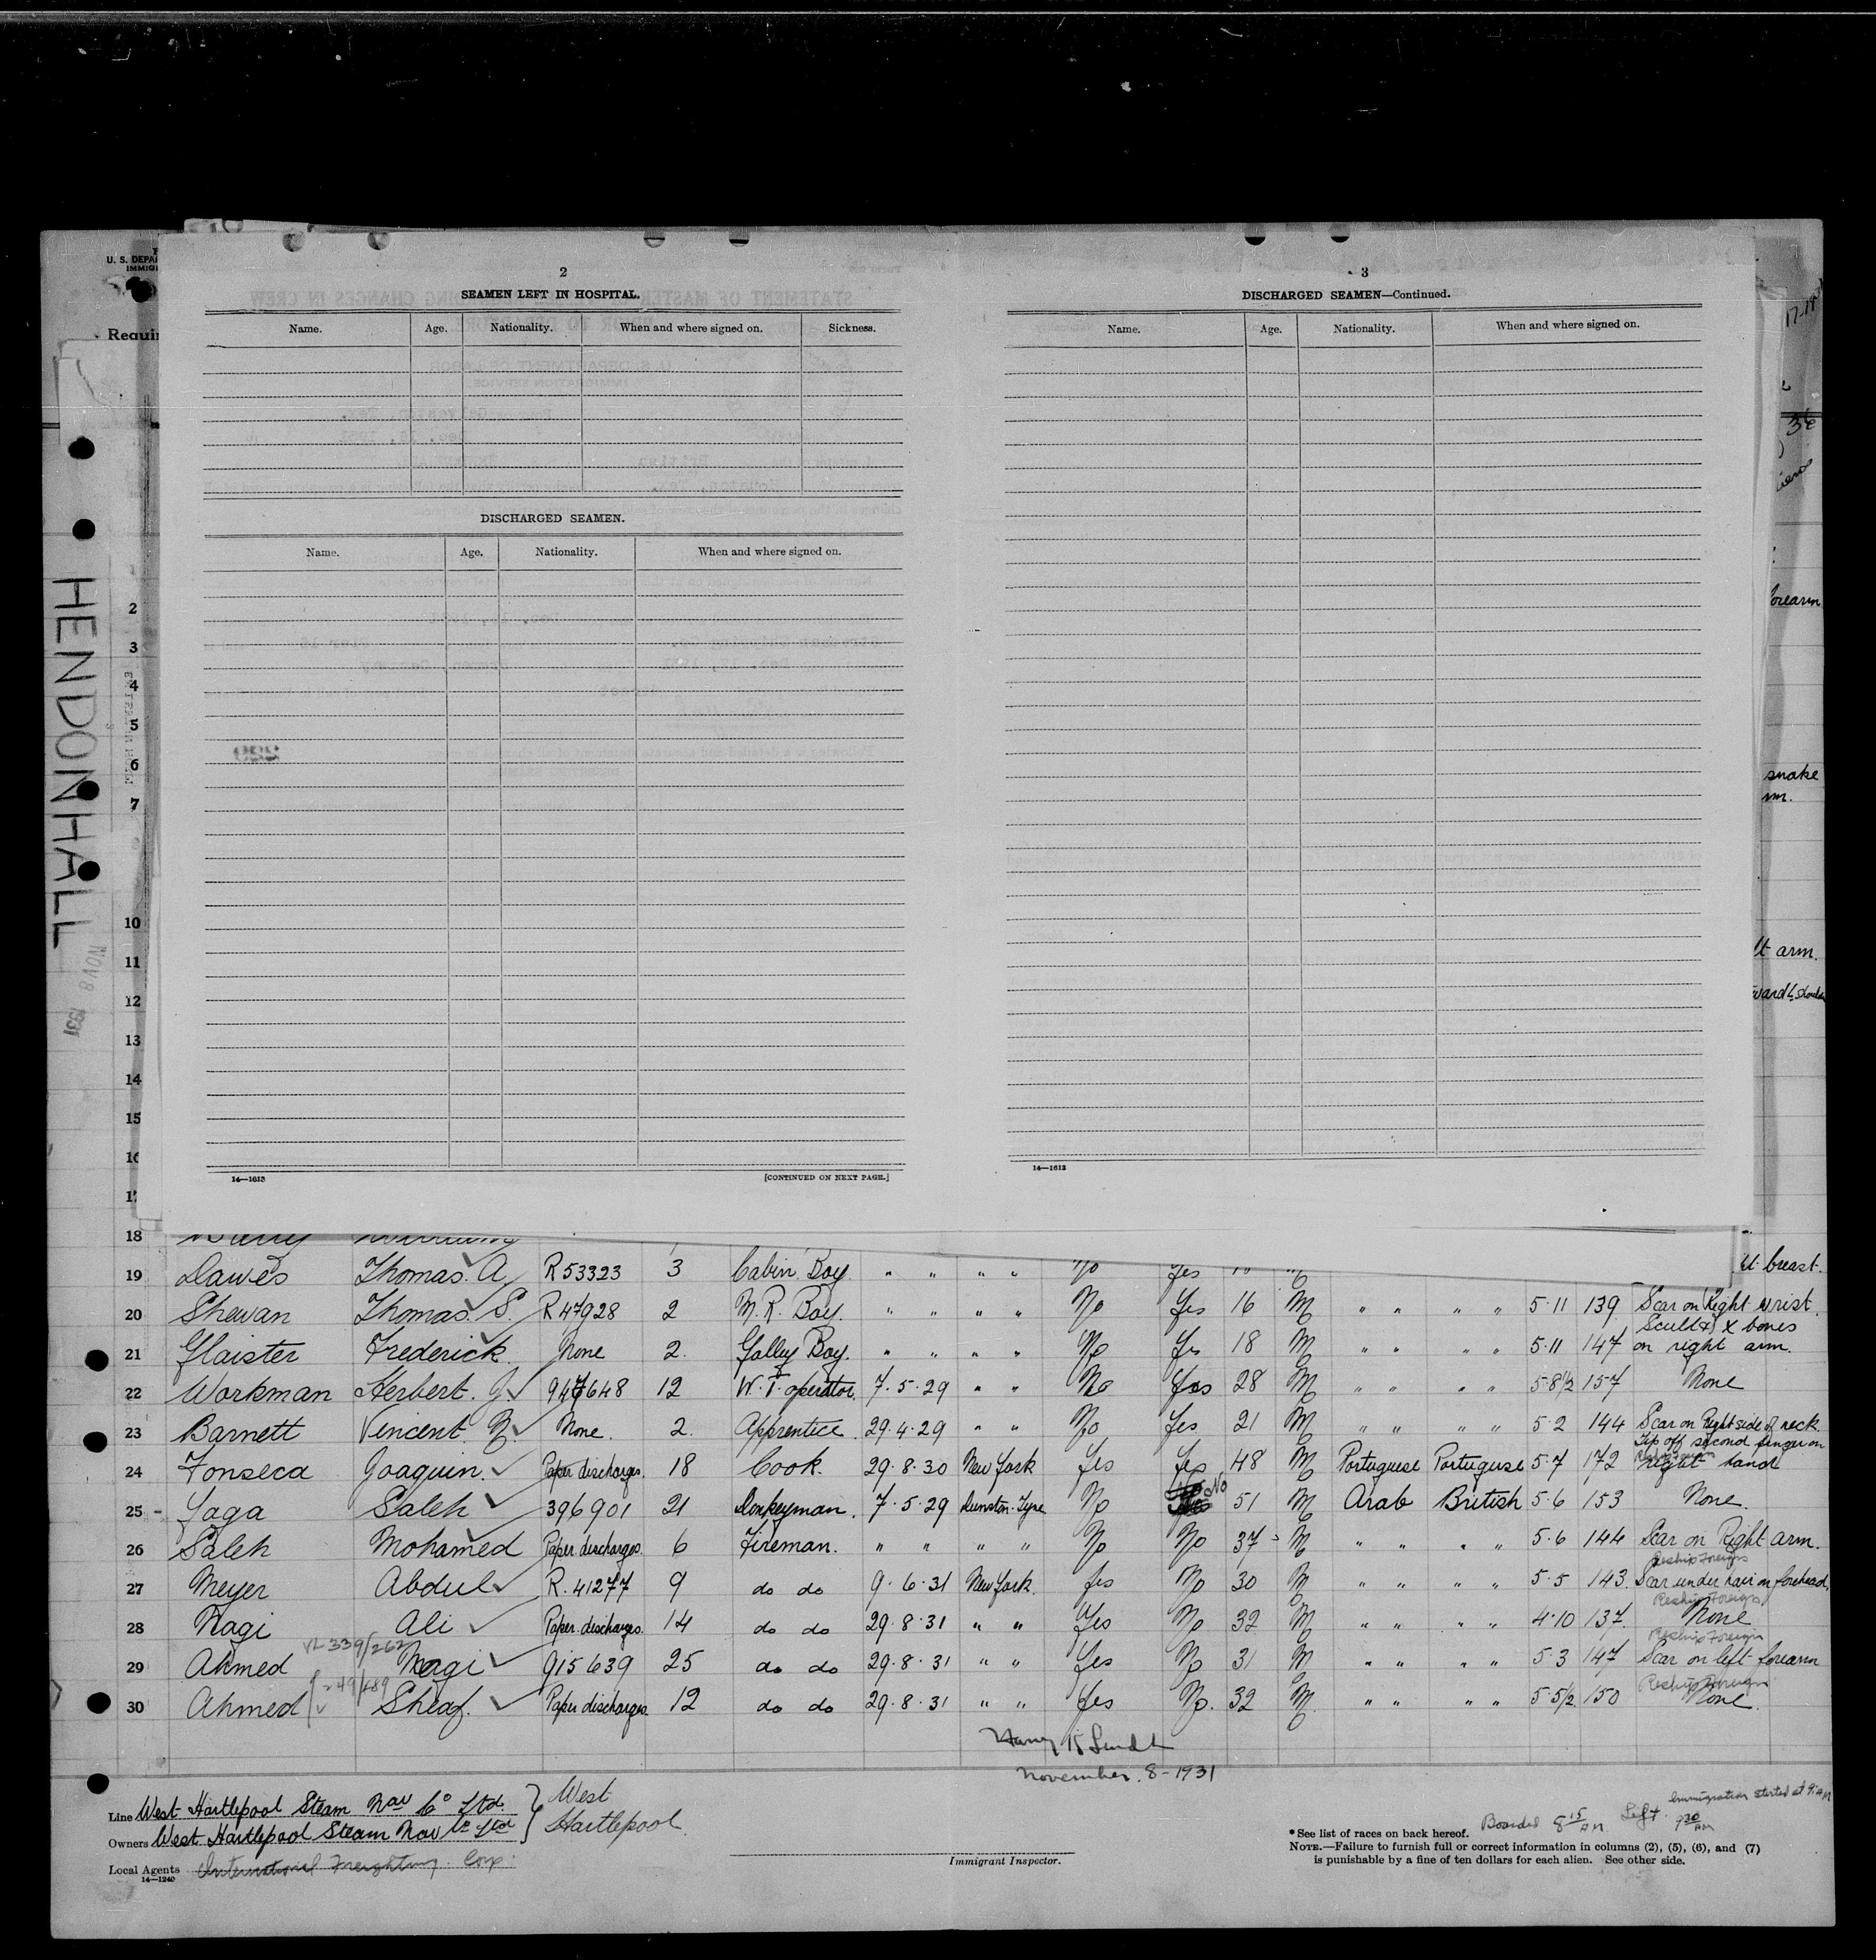 U. S. DEPA
IMMIG
Requi
2
SEAMEN LEFT IN HOSPITAL.
Name. Age. Nationality. When and where signed on. Sickness.
DISCHARGED SEAMEN.
Name. Age. Nationality. When and where signed on.
14—1613
[CONTINUED ON NEXT PAGE.]
3
DISCHARGED SEAMEN—Continued.
Name. Age. Nationality. When and where signed on.
14—1613
HENDONHALL
NOV 8 1931
2
3
4
5
6
7
10
11
12
13
14
15
forearm
snake
lt arm.
18
19 Dawes Thomas. A. R 53323 3 Cabin Boy " " " " No Yes breast.
20 Shewan Thomas. S. R 47928 2 M. R. Boy. " " " " No Yes 16 M " " " " 5·11 139 Scar on Right wrist.
21 Glaister Frederick. None 2. Galley Boy. " " " " No Yes 18 M " " " " 5·11 147 Scull & X bones on right arm.
22 Workman Herbert. J. 947648 12 W. T. operator. 7·5·29 " " No Yes 28 M " " " " 5·8½ 157 None
23 Barnett Vincent. None. 2. Apprentice. 29·4·29 " " No Yes 21 M " " " " 5·2 144 Scar on Right side of neck.
24 Fonseca Joaquin. Paper discharges. 18 Cook. 29·8·30 New York Yes Yes 48 M Portuguese Portuguese 5·7 172 Tip off second finger on right hand
25 - Yaga Saleh 396901 21 Donkeyman. 7·5·29 Dunston-Tyne No No 51 M Arab British 5·6 153 None.
26 Saleh Mohamed Paper discharges. 6 Fireman. " " " " No No 37 M " " " " 5·6 144 Scar on Right arm.
Reship Foreign
27 Meyer Abdul R. 41277 9 do do 9·6·31 New York. Yes No 30 M " " " " 5·5 143. Scar under hair on forehead.
Reship Foreign
28 Nagi Ali Paper discharges. 14 do do 29·8·31 " " Yes No 32 M " " " " 4·10 137. None
Reship Foreign
29 Ahmed Nagi 915639 25 do do 29·8·31 " " Yes No 31 M " " " " 5·3 147 Scar on left forearm
Reship Foreign
30 Ahmed Sheaf. Paper discharges. 12 do do 29·8·31 " " Yes No. 32 M " " " " 5·5½ 150 None.
November. 8-1931
Line West Hartlepool Steam Nav Co Ltd. } West
Owners West Hartlepool Steam Nav Co Ltd } Hartlepool.
Local Agents International Freighting Corp.
14—1240
Immigrant Inspector.
Immigration started at
Boarded 8 15 AM. Left 9 30 AM
*See list of races on back hereof.
NOTE.—Failure to furnish full or correct information in columns (2), (5), (6), and (7)
is punishable by a fine of ten dollars for each alien. See other side.